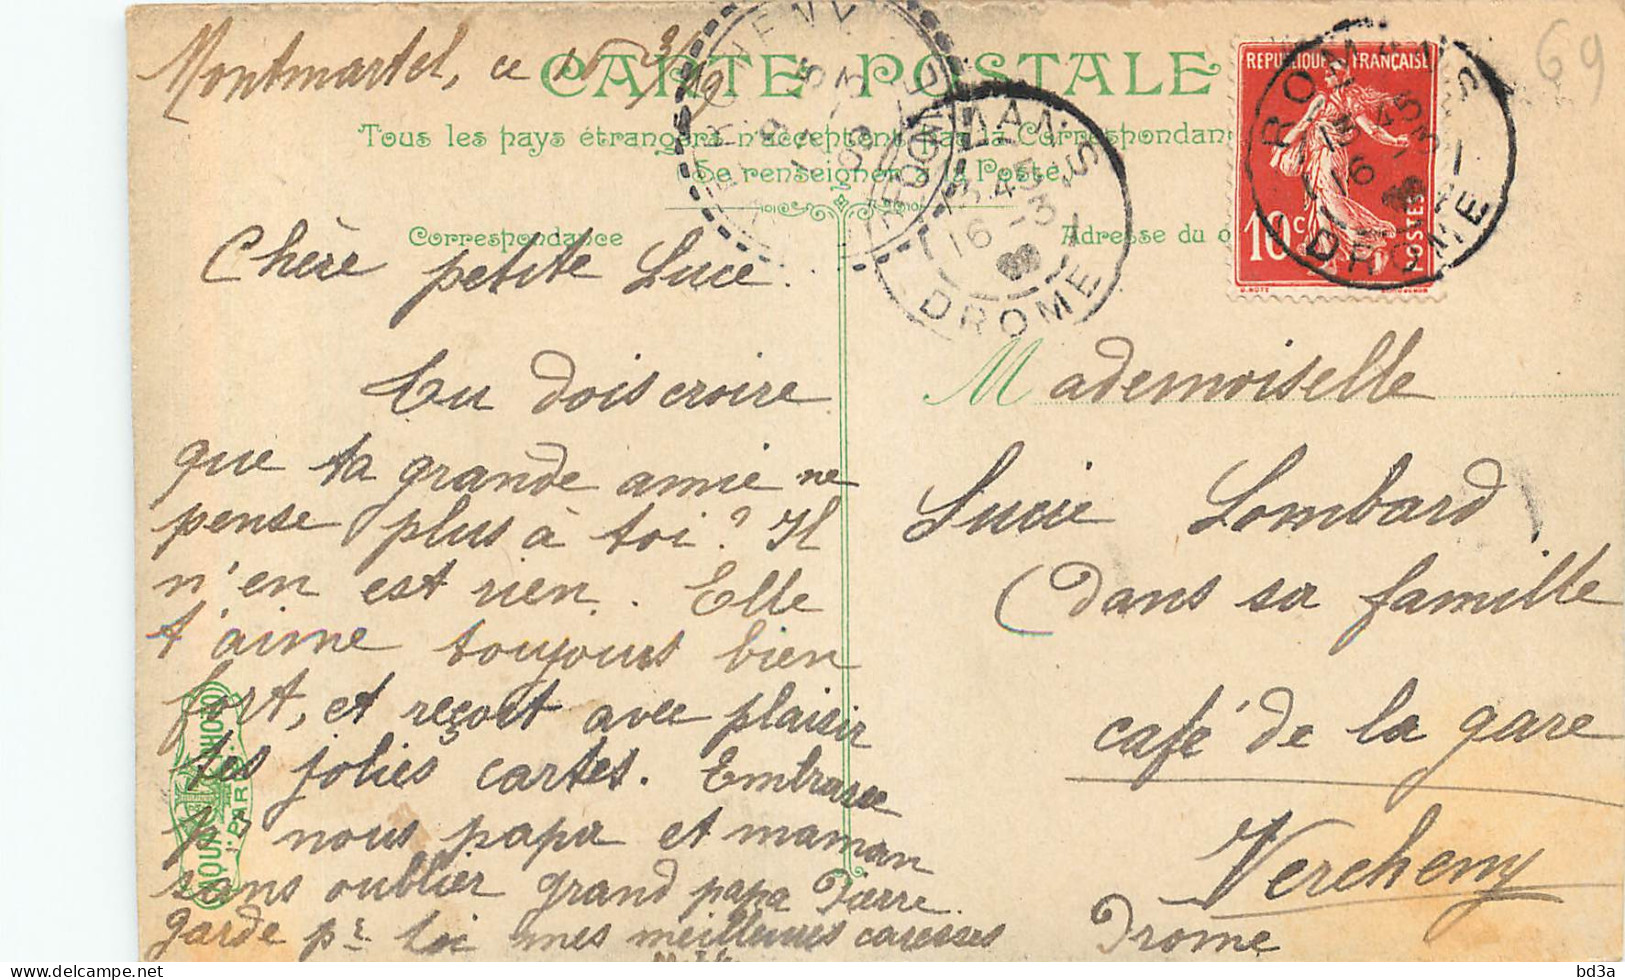 Montmartel, ce 15 3/09
CARTE POSTALE
Tous les pays étrangers n'acceptent pas la Correspondance
(Se renseigner à la Poste)
Correspondance
Adresse du
RÉPUBLIQUE FRANÇAISE
10 c.
POSTES
ROMANS
DROME
16 -3
ROMANS
13 45
16 -3
DROME
69
Chère petite Luce.
Tu dois croire
que ta grande amie ne
pense plus à toi? Il
n'en est rien. Elle
t'aime toujours bien
fort, et reçoit avec plaisir
tes jolies cartes. Embrasse
pr nous papa et maman
sans oublier grand papa Pierre.
Garde pr toi mes meilleures caresses
Mademoiselle
Lucie Lombard
(Dans sa famille
café de la gare
Vercheny
Drome
AQUA PHOTO
PARIS
bd3a